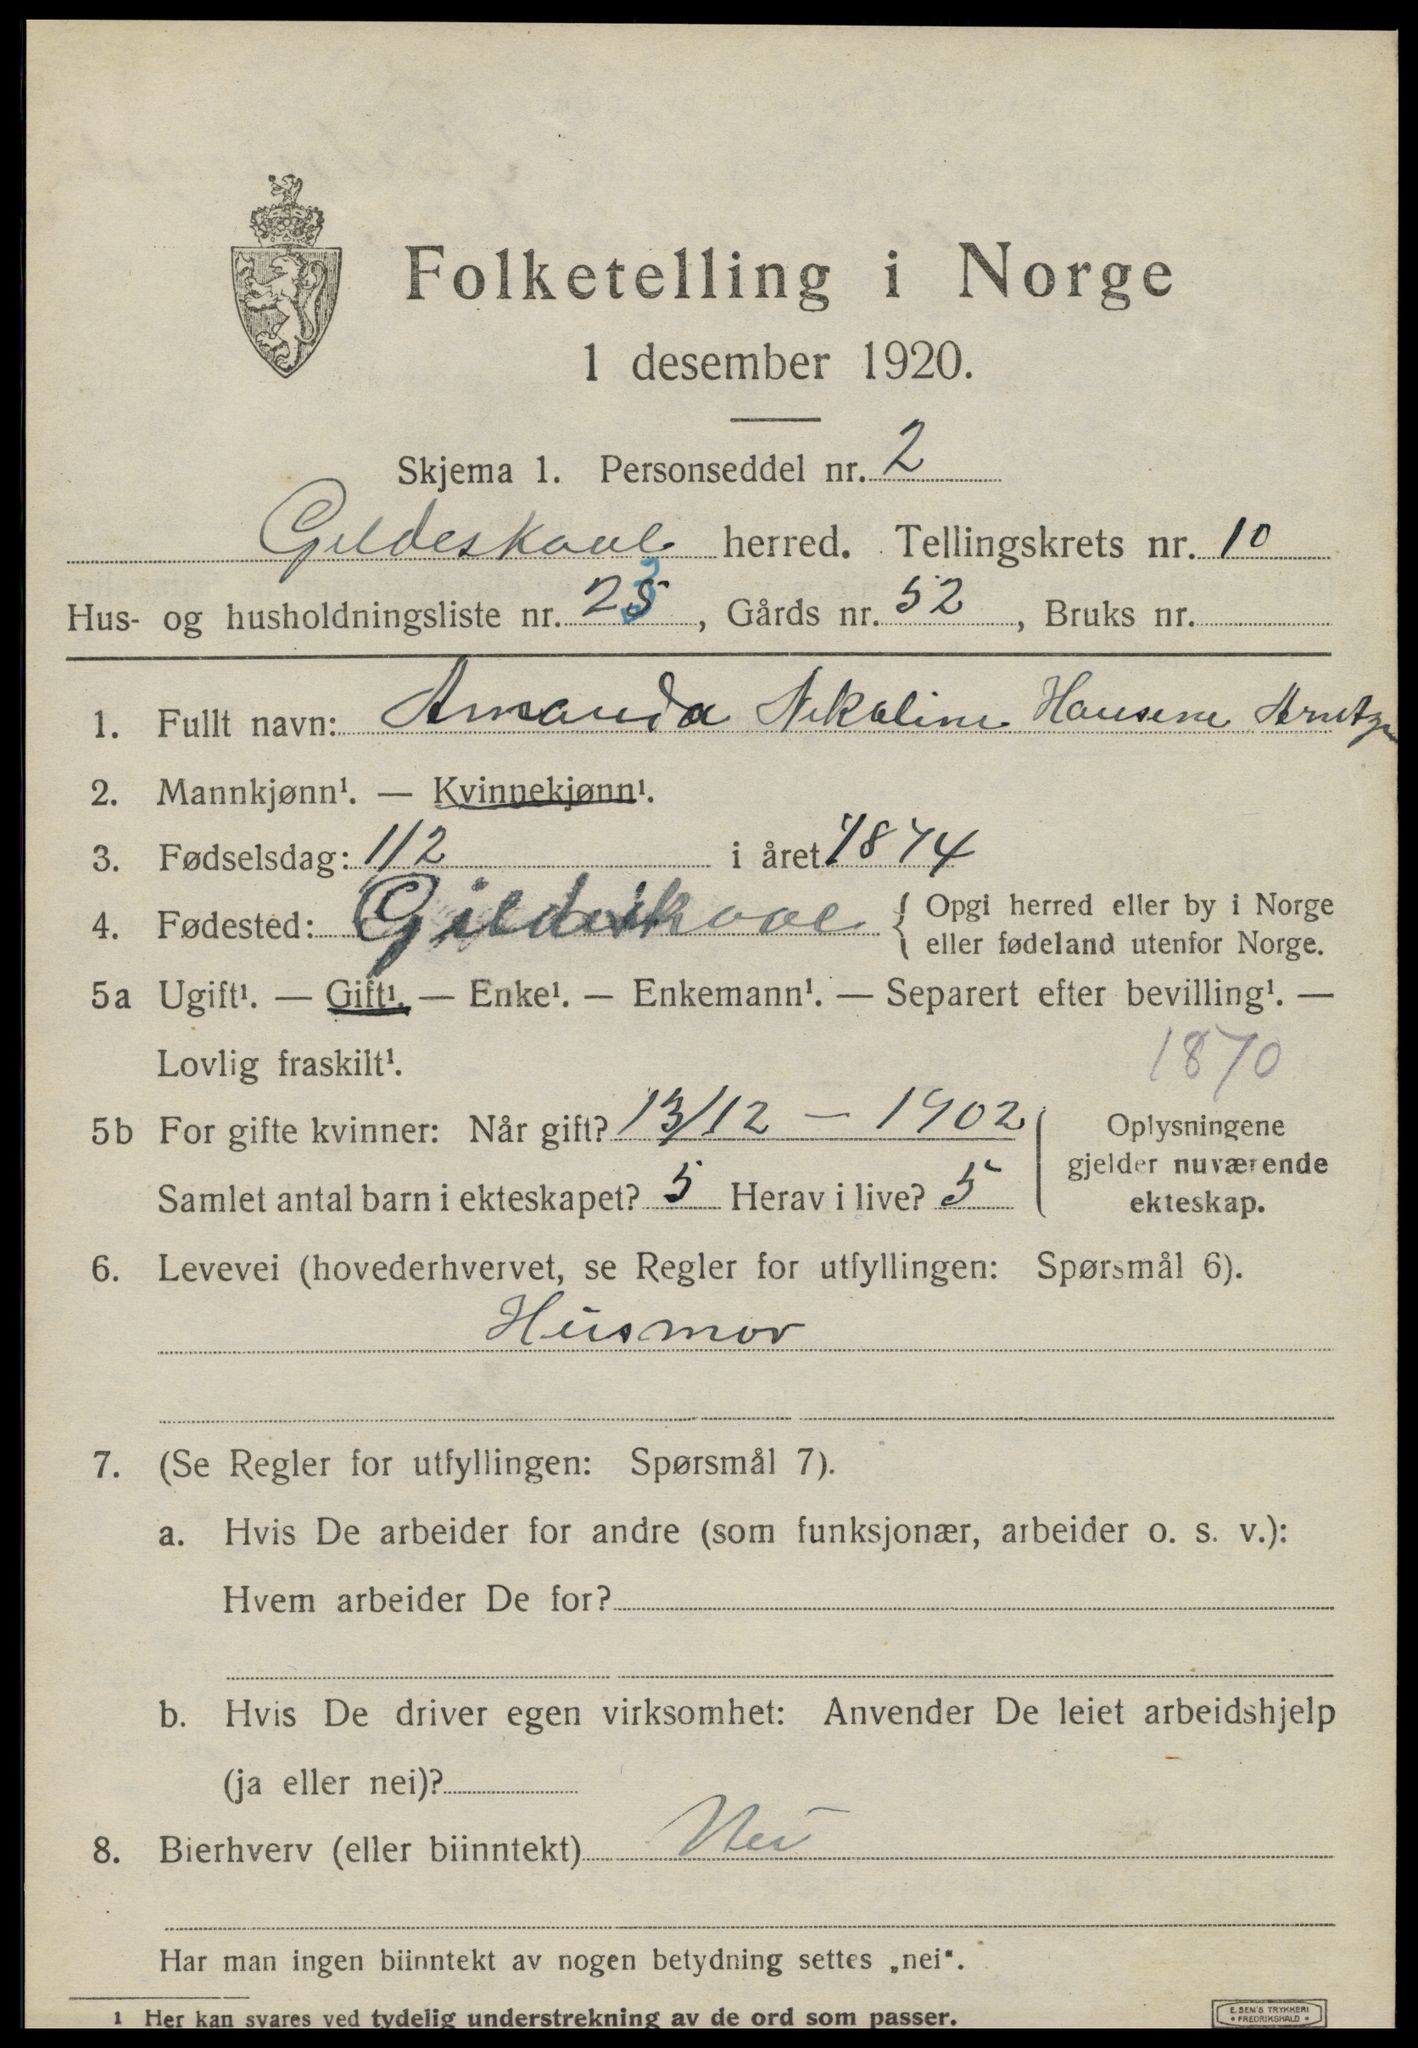 Folketelling i Norge
1 desember 1920.
Skjema 1. Personseddel nr. 2
Gildeskaal herred. Tellingskrets nr. 10
Hus- og husholdningsliste nr. 23, Gårds nr. 52, Bruks nr.
1. Fullt navn: Amanda Nikoline Hansene Arntzen
2. Mannkjønn¹. — Kvinnekjønn¹.
3. Fødselsdag: 1/2 i året 1874
4. Fødested: Gildeskaal { Opgi herred eller by i Norge
eller fødeland utenfor Norge.
5a Ugift¹. — Gift¹. — Enke¹. — Enkemann¹. — Separert efter bevilling¹. —
Lovlig fraskilt¹. 1870
5b For gifte kvinner: Når gift? 13/12 - 1902
Samlet antal barn i ekteskapet? 5 Herav i live? 5
Oplysningene
gjelder nuværende
ekteskap.
6. Levevei (hovederhvervet, se Regler for utfyllingen: Spørsmål 6).
Husmor
7. (Se Regler for utfyllingen: Spørsmål 7).
a. Hvis De arbeider for andre (som funksjonær, arbeider o. s. v.):
Hvem arbeider De for?
b. Hvis De driver egen virksomhet: Anvender De leiet arbeidshjelp
(ja eller nei)?
8. Bierhverv (eller biinntekt) Nei
Har man ingen biinntekt av nogen betydning settes „nei“.
1 Her kan svares ved tydelig understrekning av de ord som passer.
E. SEM'S TRYKKERI
• FREDRIKSHALD •